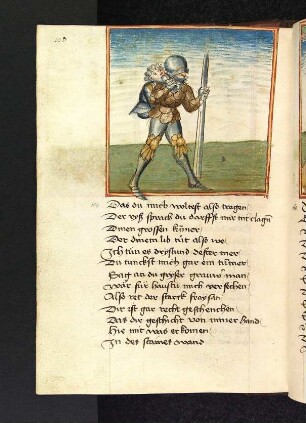 Das du mich woltest also tragen
Der ryß sprach du darffst mir nit clagn
Dinen grossen kumer
Der dinem lib tůt also we
Ich tun es dryſtund deſter mer
Du tunckſt mich gar ein tumer
Sag an du gryser grawer man
war für hastu mich versehen
Also ret der starck fraysan
Dir ist gar recht geschenhen
Das die geschicht von miner hand
Hie mit was er komen
In des steines wand